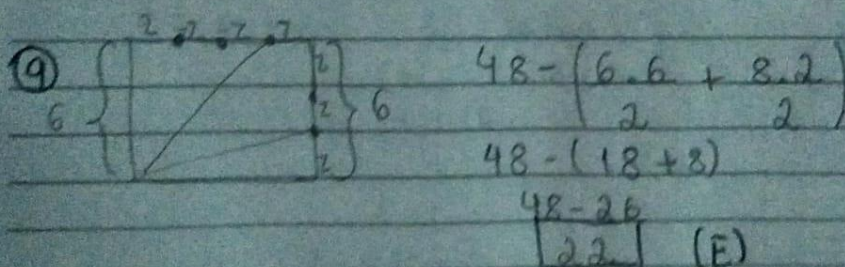 9
2 2 2 2
6 2 2 2 6
48 - (6.6/2 + 8.2/2)
48 - (18 + 8)
48 - 26
22 (E)